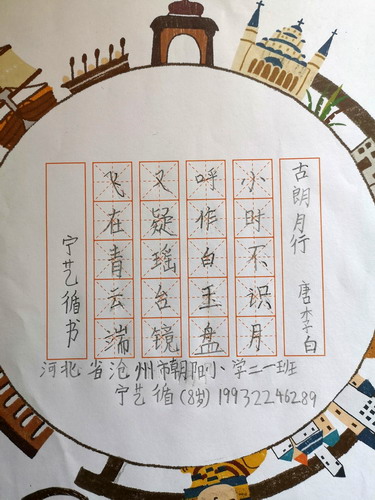 古朗月行 唐李白
小时不识月
呼作白玉盘
又疑瑶台镜
飞在青云端
宁艺循书
河北省沧州市朝阳小学二一班
宁艺循(8岁)19932246289